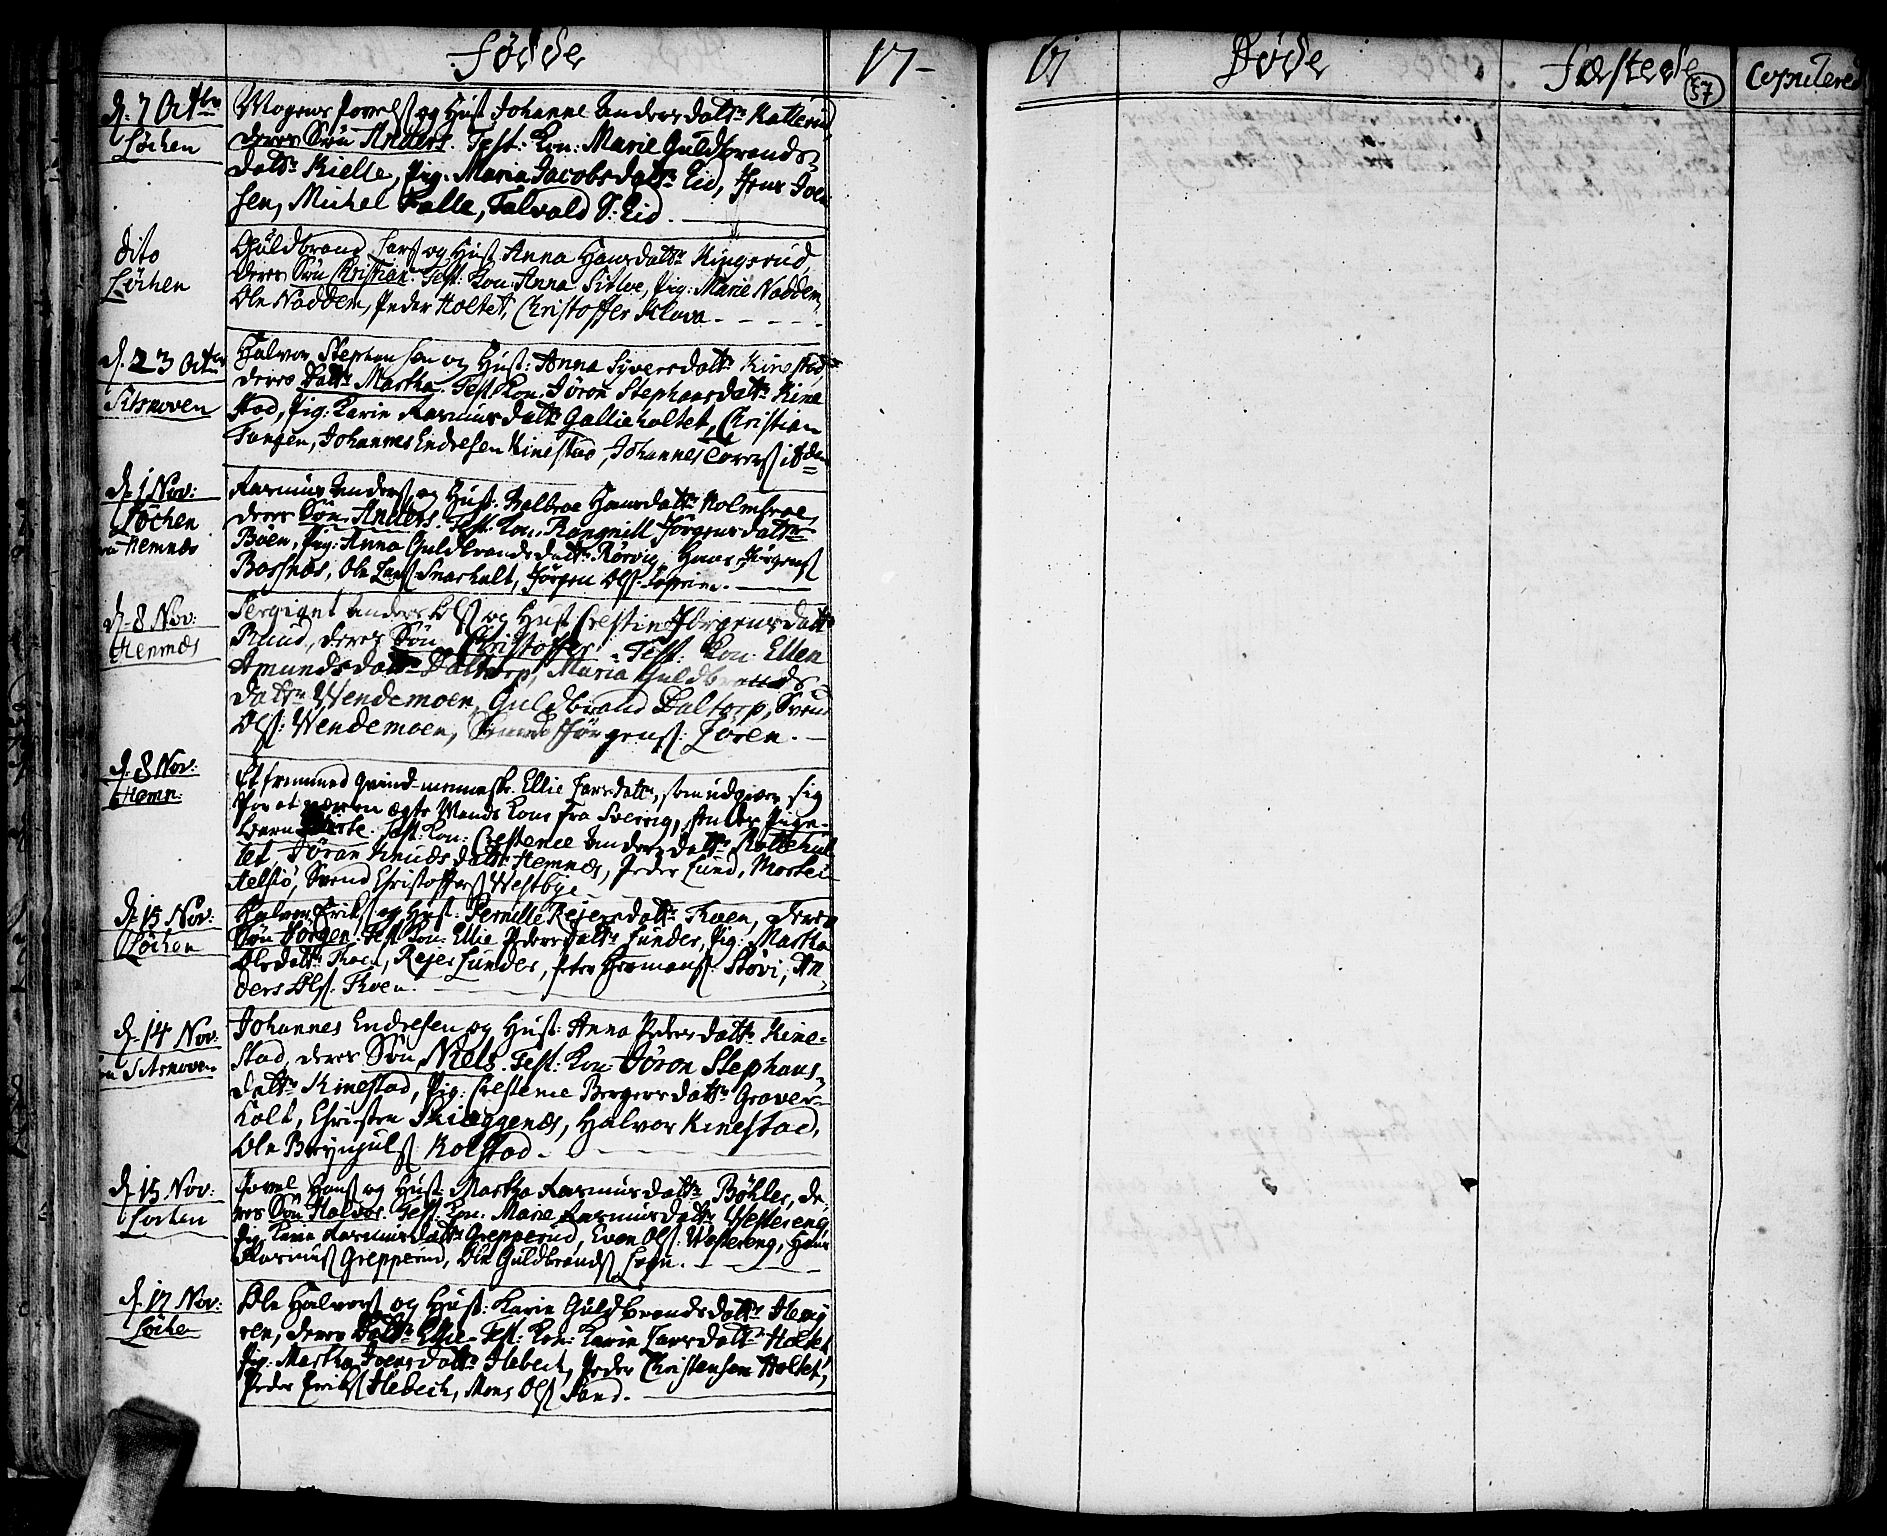 Födde
17-
61
Döde
Fæstede
57
Copulerede
d. 7 Octbr
Løchen
Mogens Povels. og Hust. Johanne Andersdattr Katterud
deres Sön Anders. Test: Kon: Marie Guldbrands-
dattr Kielle, Pig. Maria Jacobsdattr Eid, Jens Joen
sen, Michel Falle, Talvald S: Eid.
dito
Løchen
Guldbrand Lars. og Hust. Anna Hansdattr Ringsrud,
deres Sön Christian. Test: Kon: Anna Sitlve, Pig: Marie Nadden,
Ole Nadden, Peder Holtet, Christoffer
d. 23 Octbr
Sitsnoven
Halvor Stephensen og Hust: Anna Syversdattr Kinestad,
deres Dattr Martha. Test. Kon. Jöron Stephansdattr Kine
stad, Pig: Karin Rasmusdattr Gallieholtet, Christian
Tangen, Johannes Endresen Kinestad, Johannes
d. 1 Nov:
Løchen
Hemnæs
Rasmus Anders. og Hust: Valbroe Hansdattr Holmsroe,
deres Sön Anders. Test. Kon. Rangnill Jörgensdattr
Böen, Pig: Anna Guldbrandsdattr Rörvig, Hans Jörgens.
Bosnæs, Ole Lars. Snarholt, Jörgen Ols.
d. 8 Nov:
Hemnæs
Sergiant Anders Ols. og Hust Crestine Jörgensdattr
Ruud, deres Sön Christoffer. Test: Kon: Ellen
Amundsdattr Daltorp, Maria Guldbrands-
dattr Wendemoen, Guldbrand Daltorp, Svend
Ols: Wendemoen, Jörgens. Loren.
d. 8 Nov:
Hemn:
Et fremmed qvind-menneske. Ellie Larsdattr, som udgiver sig
for at være en ægte Mands Kone fra Sverrig, Pige-
barn Test: Kon: Crestence Andersdattr
Jöran Knudsdattr Hemnæs, Peder Lund, Morten
Kelsiö, Svend Christoffers. Westbye
d. 15 Nov:
Løchen
Halvor Eriks. og Hust: Pernille Rejersdattr Tvoen, deres
Sön Jörgen. Test. Kon: Ellie Pedersdattr Lunder, Pig: Martha
Olsdattr Tvoen, Rejer Lunder, Peter Hermans. Stövi, An
ders Ols. Tvoen.
d. 14 Nov:
Sitsnoven
Johannes Endresen og Hust: Anna Pedersdattr Kine-
stad, deres Sön Niels. Test: Kon: Jöron Stephans-
dattr Kinestad, Pig: Crestence Bergersdattr Graver-
holt, Christen Skiæggenæs, Halvor Kinestad,
Ole Brynjuls. Kolstad.
d. 15 Nov:
Løchen
Povel Hans. og Hust: Martha Rasmusdattr Böhler, de
res Sön Halvor. Test. Kon: Marie Rasmusdattr Westereng
Pig. Karin Rasmusdattr Grepperud, Even Ols: Westereng, Hans
Rasmus. Grepperud, Ole Guldbrands.
d. 17 Nov:
Løche
Ole Halvors. og Hust: Karin Guldbrandsdattr
ren, deres Dattr Ellie. Test: Kon: Karin Larsdattr Holtet
Pig: Martha Joensdattr Hebech, Peder Christensen Holtet,
Peder Eriks. Hebech, Mons Ols. Sand.